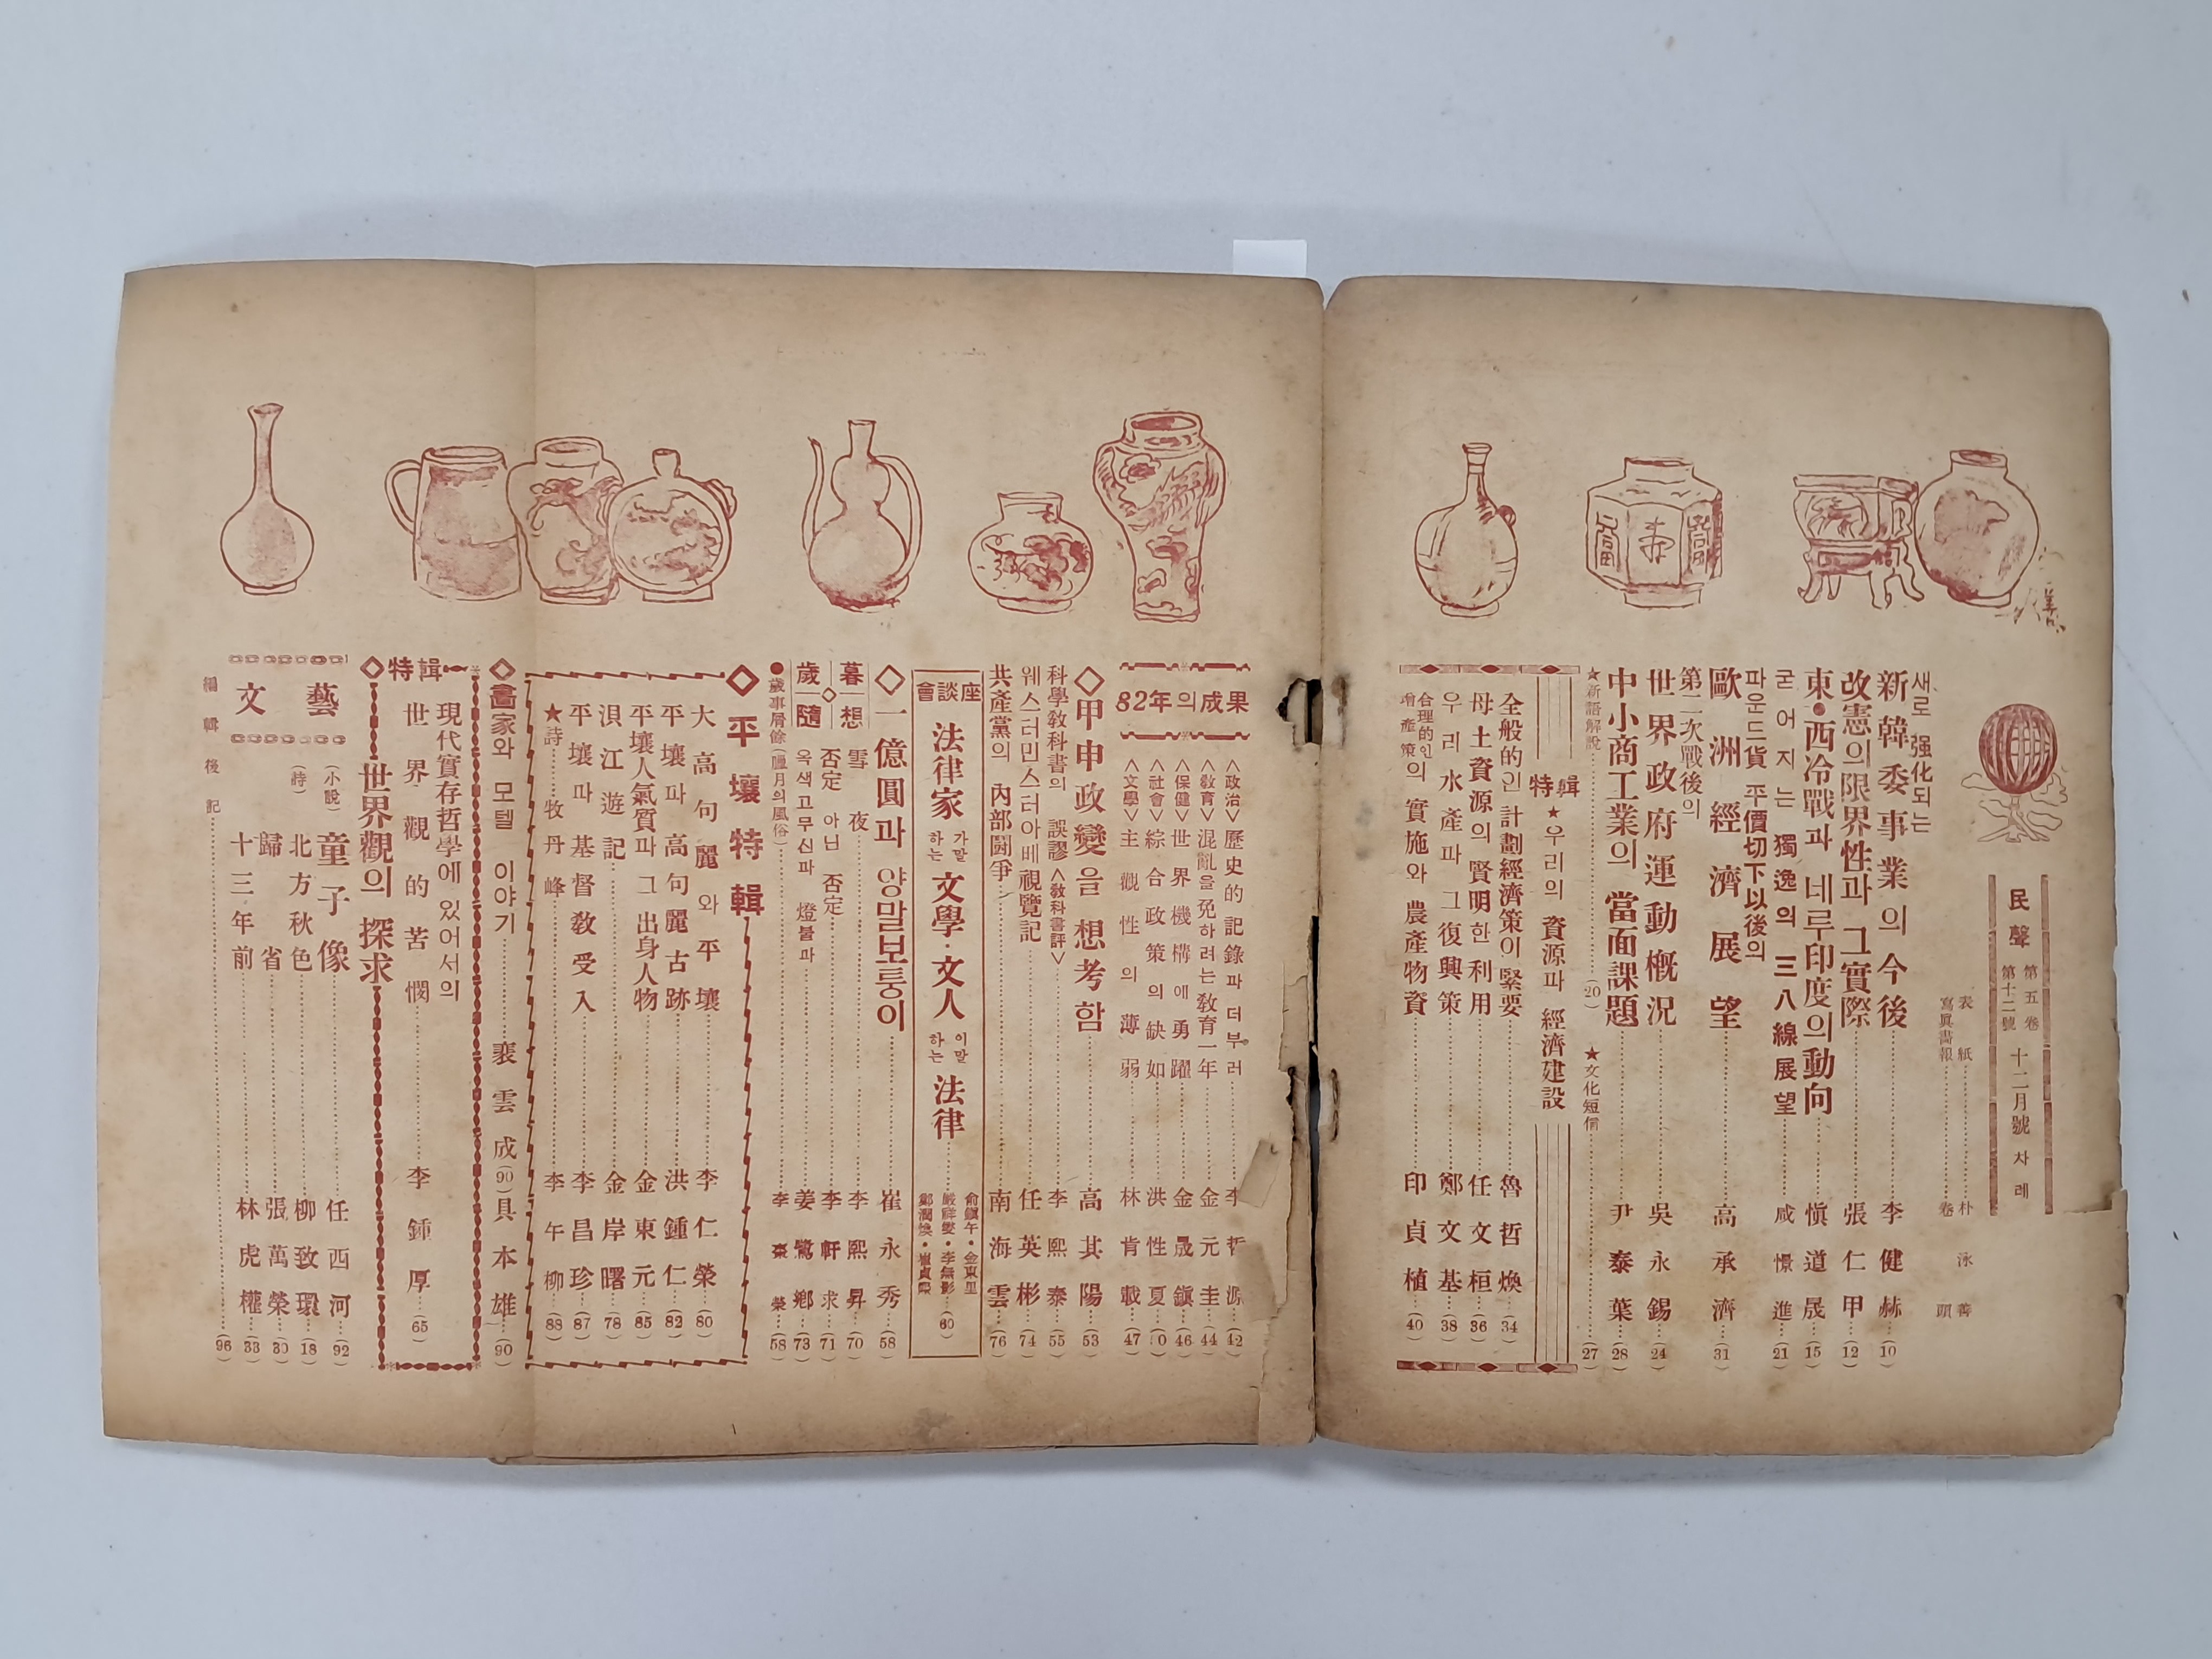 民聲 第五卷 第十二號 十二月號 차례
表紙……朴泳善
寫眞畵報……卷頭
새로 强化되는
新韓委事業의 今後……李健赫…(10)
改憲의 限界性과 그 實際……張仁甲…(12)
東●西冷戰과 네루印度의 動向……愼道晟…(15)
굳어지는 獨逸의 三八線展望……咸憬進…(21)
파운드貨 平價切下以後의
歐洲經濟展望……高承濟…(31)
第二次戰後의
世界政府運動槪況……吳永錫…(24)
中小商工業의 當面課題……尹泰葉…(28)
★新語解說……(20)
★文化短信……(27)
特輯 ★우리의 資源과 經濟建設
全般的인 計劃經濟策이 緊要……魯哲煥…(34)
母土資源의 賢明한 利用……任文桓…(36)
우리 水產과 그 復興策……鄭文基…(38)
合理的인 增產策의 實施와 農產物資……印貞植…(40)
82年의 成果
<政治>歷史的 記錄과 더부러……李哲源…(42)
<敎育>混亂을 免하려는 敎育一年……金元圭…(44)
<保健>世界機構에 勇躍……金晟鎭…(46)
<社會>綜合政策의 缺如……洪性夏
<文學>主觀性의 薄弱……林肯載…(47)
◇甲申政變을 想考함……高其陽…(53)
科學敎科書의 誤謬<敎科書評>……李熙泰…(55)
웨스터민스터아베視覽記……任英彬…(74)
共產黨의 內部鬪爭……南海雲…(76)
座談會
法律家가 말하는 文學·文人이 말하는 法律……兪鎭午・金東里 嚴詳燮・李無影 鄭潤煥・崔貞熙…(60)
◇一億圓과 양말보퉁이……崔永秀…(58)
歲暮隨想
雪夜……李熙昇…(70)
否定 아닌 否定……李軒求…(71)
옥색고무신과 燈불과……姜鷺鄕…(73)
●歲事屑餘(臘月의 風俗)……李秉榮…(58)
◇平壤特輯
大高句麗와 平壤……李仁榮…(80)
平壤과 高句麗古跡……洪鍾仁…(82)
平壤人氣質과 그 出身人物……金東元…(85)
浿江遊記……金岸曙…(78)
平壤과 基督敎受入……李昌珍…(87)
★詩……牧丹峰……李午柳…(88)
◇畵家와 모델 이야기……裵雲成(90) 具本雄…(90)
◇特輯
現代實存哲學에 있어서의
世界觀的 苦憫……李鍾厚…(65)
世界觀의 探求
文藝
(小說)童子像……任西河…(92)
(詩)北方秋色……柳致環…(18)
歸省……張萬榮…(30)
十三年前……林虎權…(33)
編輯後記……(96)